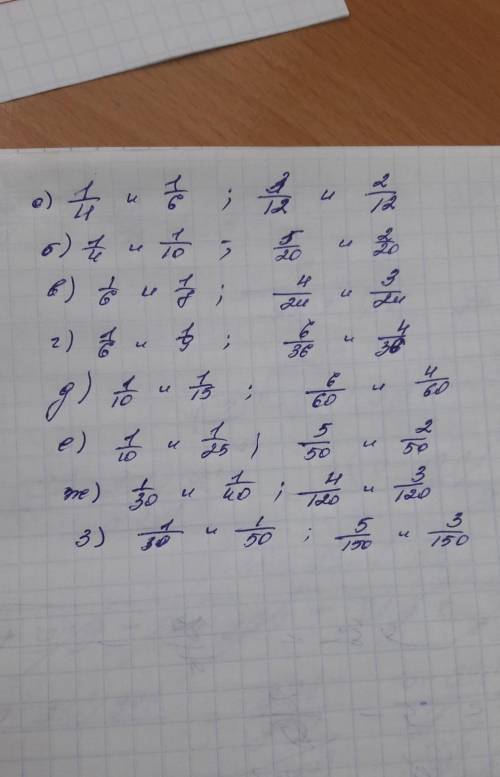 а) 1/4 и 1/6 ; 3/12 и 2/12
б) 1/4 и 1/10 ; 5/20 и 2/20
в) 1/6 и 1/8 ; 4/24 и 3/24
г) 1/6 и 1/9 ; 6/36 и 4/36
д) 1/10 и 1/15 ; 6/60 и 4/60
е) 1/10 и 1/25 ; 5/50 и 2/50
ж) 1/30 и 1/40 ; 4/120 и 3/120
з) 1/30 и 1/50 ; 5/150 и 3/150